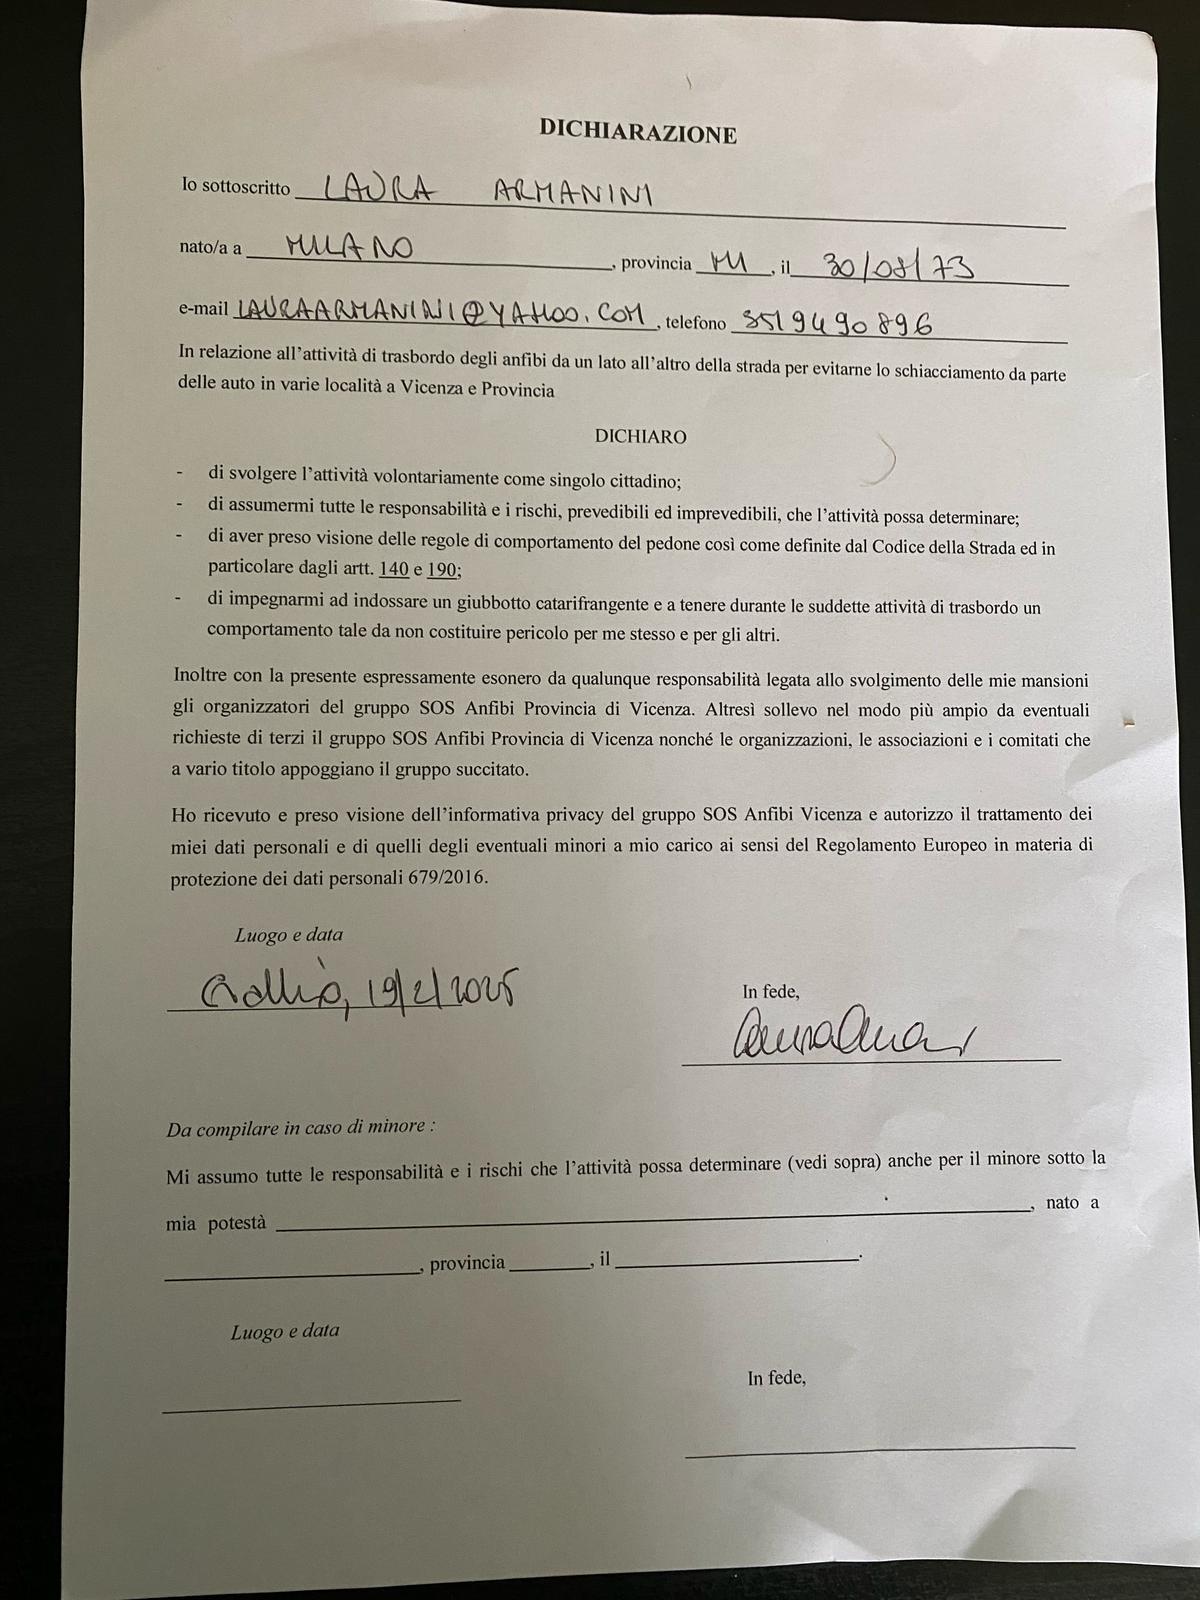 DICHIARAZIONE
Io sottoscritto LAURA ARMANINI
nato/a a MILANO, provincia MI, il 30/08/73
e-mail LAURAARMANINI@YAHOO.COM, telefono 3519490896
In relazione all'attività di trasbordo degli anfibi da un lato all'altro della strada per evitarne lo schiacciamento da parte
delle auto in varie località a Vicenza e Provincia
DICHIARO
- di svolgere l'attività volontariamente come singolo cittadino;
- di assumermi tutte le responsabilità e i rischi, prevedibili ed imprevedibili, che l'attività possa determinare;
- di aver preso visione delle regole di comportamento del pedone così come definite dal Codice della Strada ed in
particolare dagli artt. 140 e 190;
- di impegnarmi ad indossare un giubbotto catarifrangente e a tenere durante le suddette attività di trasbordo un
comportamento tale da non costituire pericolo per me stesso e per gli altri.
Inoltre con la presente espressamente esonero da qualunque responsabilità legata allo svolgimento delle mie mansioni
gli organizzatori del gruppo SOS Anfibi Provincia di Vicenza. Altresì sollevo nel modo più ampio da eventuali
richieste di terzi il gruppo SOS Anfibi Provincia di Vicenza nonché le organizzazioni, le associazioni e i comitati che
a vario titolo appoggiano il gruppo succitato.
Ho ricevuto e preso visione dell'informativa privacy del gruppo SOS Anfibi Vicenza e autorizzo il trattamento dei
miei dati personali e di quelli degli eventuali minori a mio carico ai sensi del Regolamento Europeo in materia di
protezione dei dati personali 679/2016.
Luogo e data
Gallio, 19/2/2025
In fede,
Da compilare in caso di minore :
Mi assumo tutte le responsabilità e i rischi che l'attività possa determinare (vedi sopra) anche per il minore sotto la
mia potestà , nato a
, provincia , il .
Luogo e data
In fede,